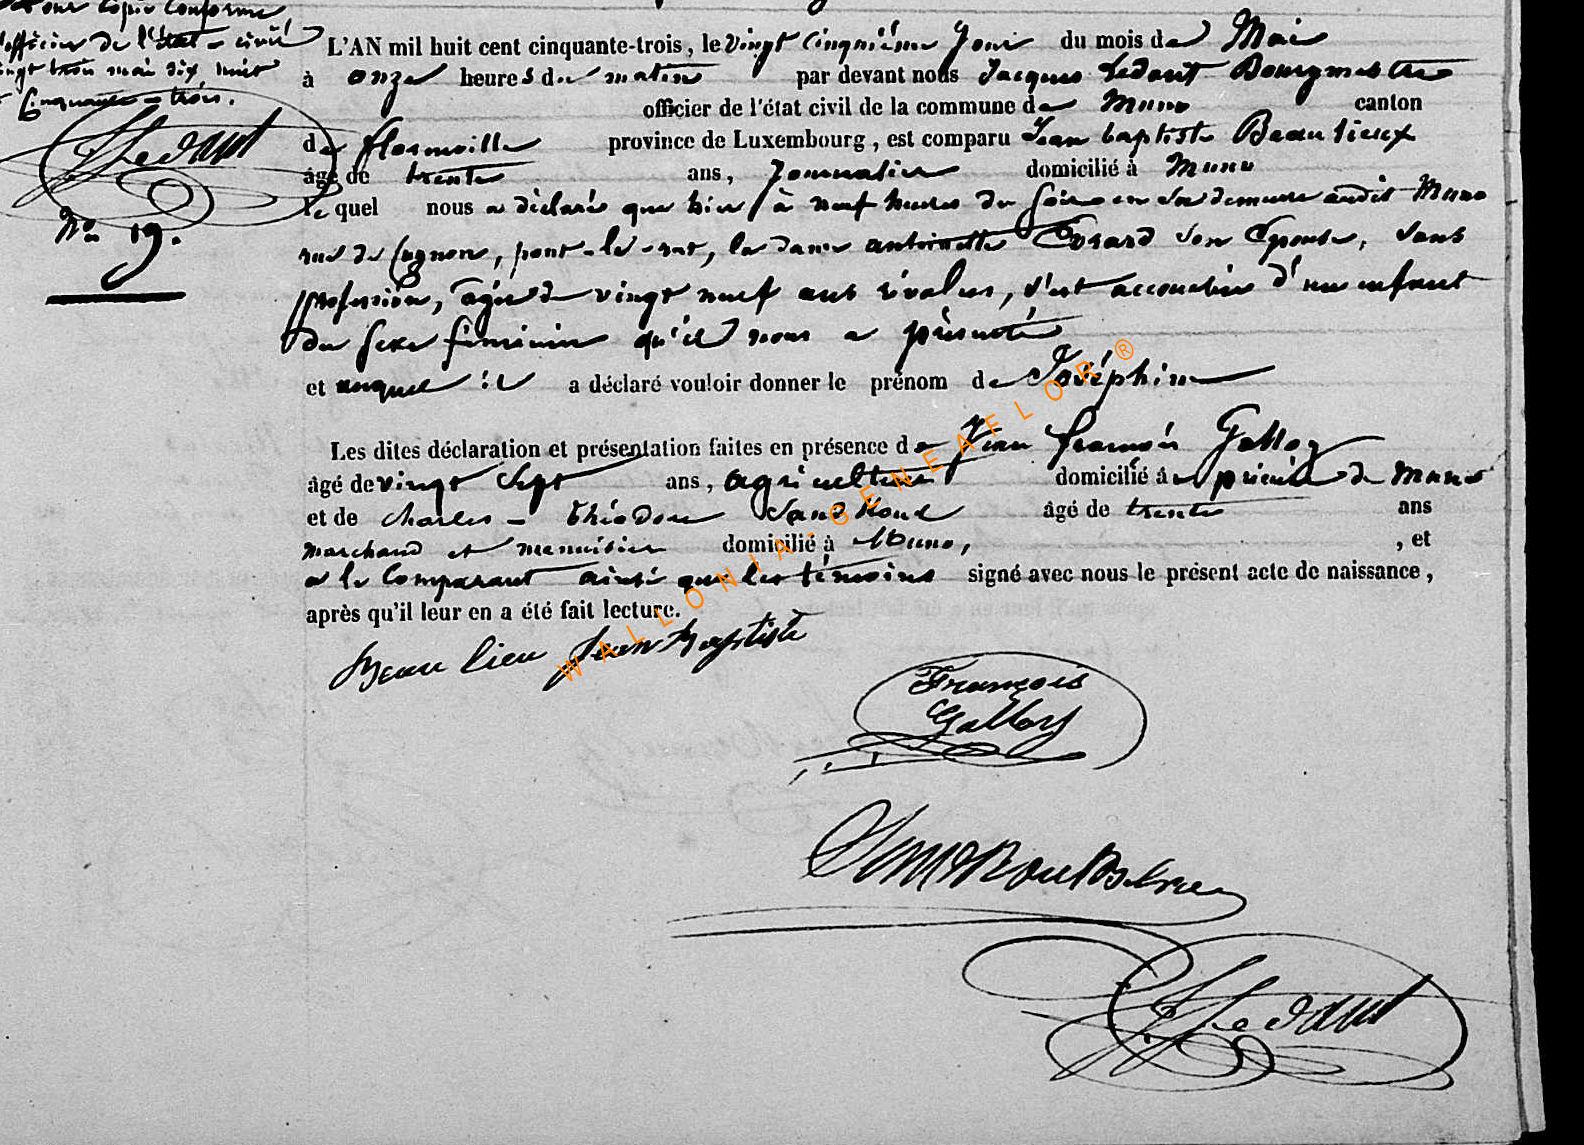 Pour copie conforme
l'officier de l'état-civil
vingt trois mai dix huit
cinquante-trois.
JLedant
No 19.
L'AN mil huit cent cinquante-trois, le vingt cinquième Jour du mois de Mai
à onze heures du matin par devant nous Jacques Ledant Bourgmestre
officier de l'état civil de la commune de Muno canton
de florenville province de Luxembourg, est comparu Jean baptiste Beaulieux
âgé de trente ans, Journalier domicilié à Muno
le quel nous a déclaré que hier à neuf heures du soir en sa demeure audit Muno
rue de Cugnon, la dame antoinette Evrard son Epouse, sans
profession, âgée de vingt neuf ans révolus, s'est accouchée d'un enfant
du sexe féminin qu'il nous a présenté
et auquel il a déclaré vouloir donner le prénom de Joséphine
Les dites déclaration et présentation faites en présence de Jean françois Galloy
âgé de vingt sept ans, agriculteur domicilié à prieuré de Muno
et de charles-théodore Sandkoul âgé de trente ans
marchand et menuisier domicilié à Muno, , et
a le Comparant ainsi que les témoins signé avec nous le présent acte de naissance,
après qu'il leur en a été fait lecture.
Beau lieu Jean Baptiste
François
Galloy
JLedant
WALLONIA-GENEAFLOR®